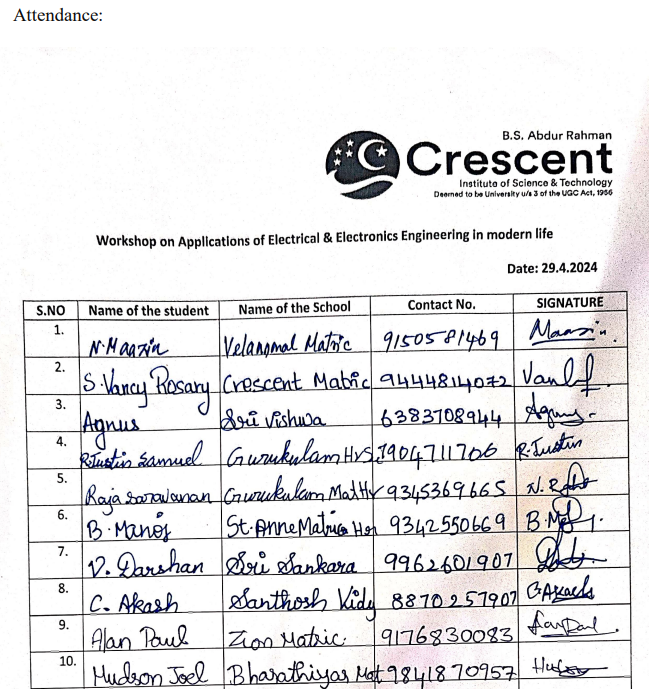 Attendance:
B.S. Abdur Rahman
Crescent
Institute of Science & Technology
Deemed to be University u/s 3 of the UGC Act, 1956
Workshop on Applications of Electrical & Electronics Engineering in modern life
Date: 29.4.2024
S.NO Name of the student Name of the School Contact No. SIGNATURE
1. N. Maazin Velammal Matric 9150581469 Maazin
2. S. Vancy Rosary Crescent Matric 9444814072
3. Agnus Sri Vishwa 6383708944 Agnus
4. R. Justin Samuel Gurukulam HrS 7904711706 R. Justin
5. Raja saravanan Gurukulam Mat Hr 9345369665
6. B. Manoj St. Anne Matric Hr 9342550669
7. V. Darshan Sri Sankara 9962601907
8. C. Akash Santhosh Vidy 8870257907 C. Akash
9. Alan Paul Zion Matric 9176830083
10. Hudson Joel Bharathiyar Mat 9841870957